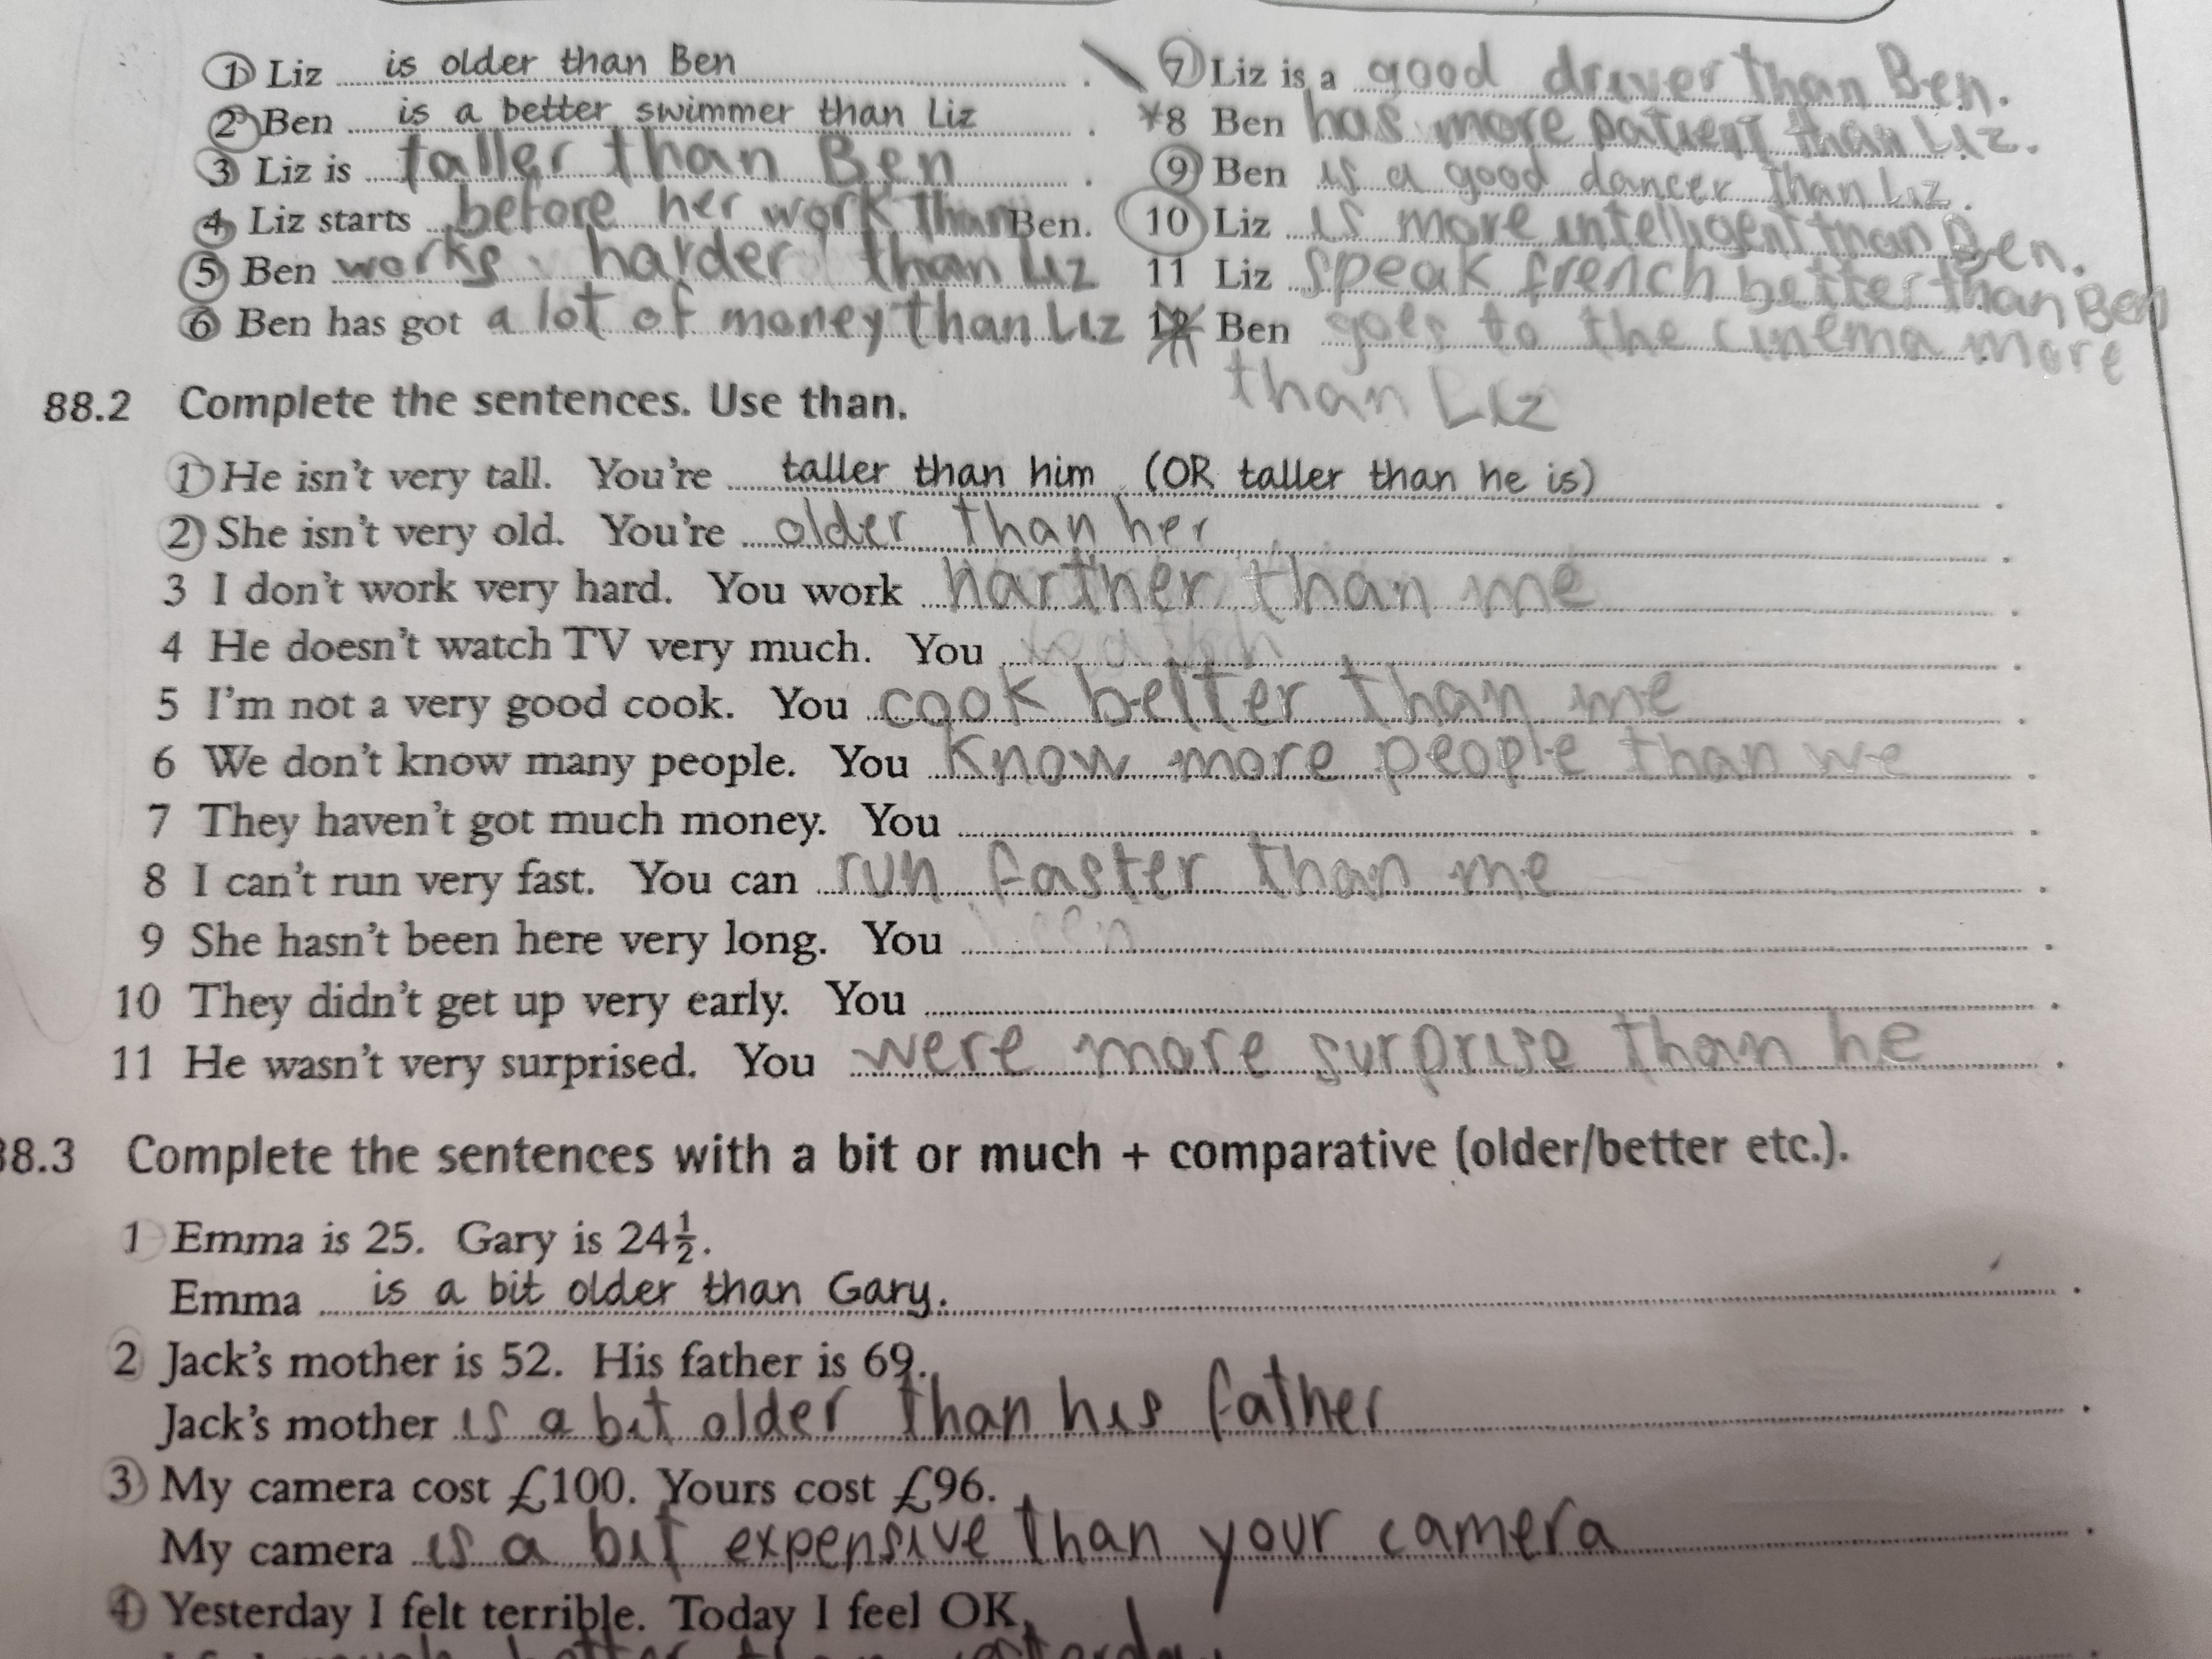 1 Liz is older than Ben .
2 Ben is a better swimmer than Liz .
3 Liz is taller than Ben .
4 Liz starts before her work than Ben.
5 Ben works harder than Liz
6 Ben has got a lot of money than Liz
7 Liz is a good driver than Ben.
8 Ben has more patient than Liz.
9 Ben is a good dancer than Liz.
10 Liz is more intelligent than Ben.
11 Liz speak french better than Ben
12 Ben goes to the cinema more
than Liz
88.2 Complete the sentences. Use than.
1 He isn't very tall. You're taller than him (OR taller than he is) .
2 She isn't very old. You're older than her .
3 I don't work very hard. You work harther than me .
4 He doesn't watch TV very much. You watch .
5 I'm not a very good cook. You cook better than me .
6 We don't know many people. You know more people than we .
7 They haven't got much money. You .
8 I can't run very fast. You can run faster than me .
9 She hasn't been here very long. You been .
10 They didn't get up very early. You .
11 He wasn't very surprised. You were more surprise than he .
88.3 Complete the sentences with a bit or much + comparative (older/better etc.).
1 Emma is 25. Gary is 24½.
Emma is a bit older than Gary. .
2 Jack's mother is 52. His father is 69.
Jack's mother is a bit older than his father .
3 My camera cost £100. Yours cost £96.
My camera is a bit expensive than your camera .
4 Yesterday I felt terrible. Today I feel OK.
much better than yesterday